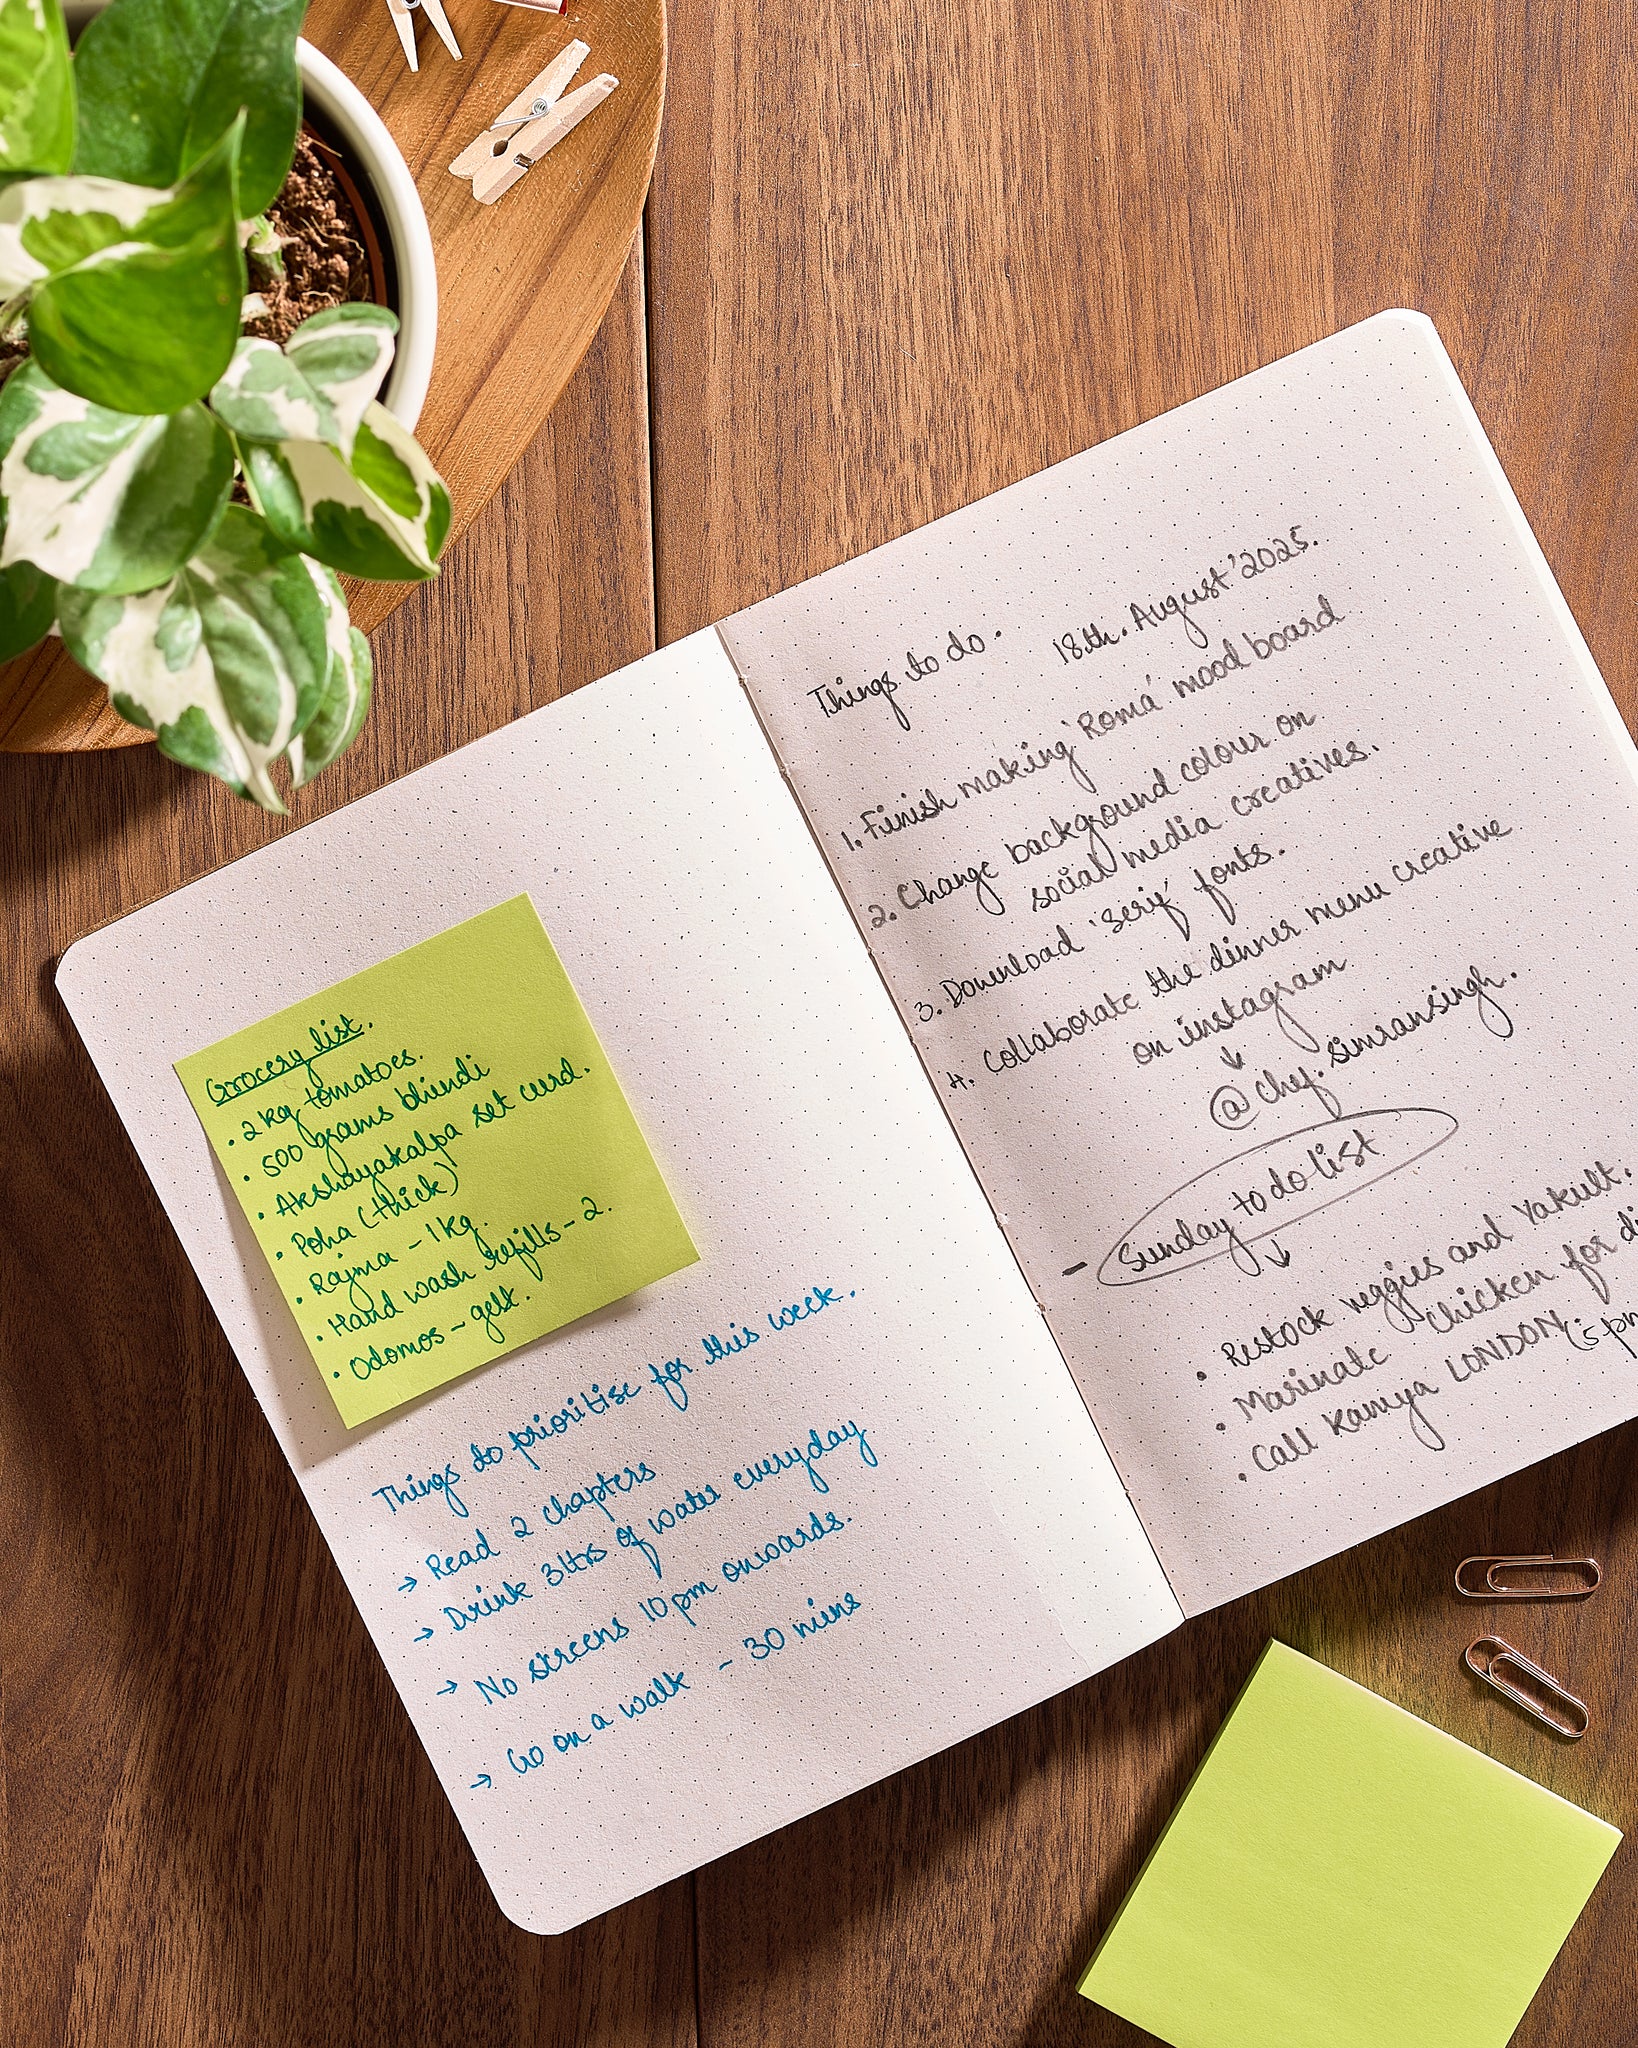 Grocery list.
• 2 kg tomatoes.
• 500 grams bhindi
• Akshayakalpa set curd.
• Poha (thick)
• Rajma - 1 kg.
• Hand wash refills - 2.
• Odomos - gelt.
Things to prioritise for this week.
→ Read 2 chapters
→ Drink 3ltrs of water everyday
→ No screens 10 pm onwards.
→ Go on a walk - 30 mins
Things to do. 18th. August' 2025.
1. Finish making 'Roma' mood board
2. Change background colour on
social media creatives.
3. Download 'serif' fonts.
4. Collaborate the dinner menu creative
on instagram
↓
@chef.simransingh.
- Sunday to do list
↓
• Restock veggies and Yakult.
• Marinate chicken for di
• Call Kamya LONDON (5 pm